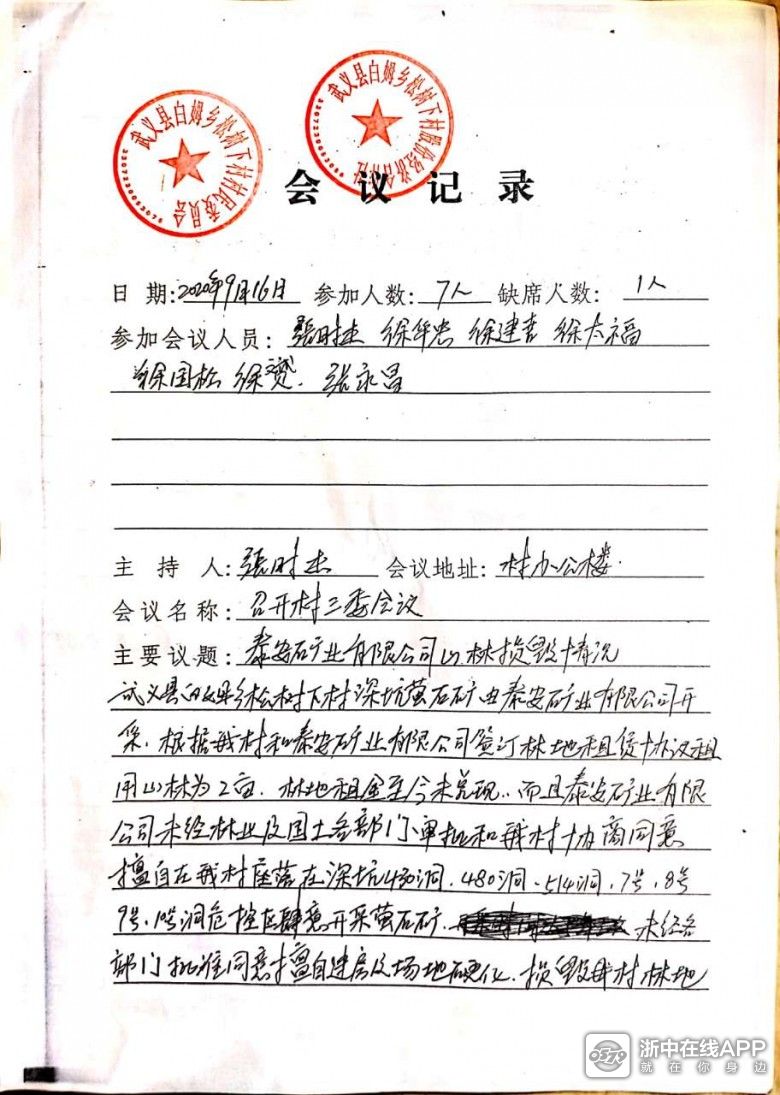 武义县白姆乡松树下村村民委员会
武义县白姆乡松树下村股份经济合作社
会议记录
日期:2020年9月16日 参加人数:7人 缺席人数:1人
参加会议人员:张时杰 徐华忠 徐建吉 徐太福
徐国松 徐赟、张永昌
主持人:张时杰 会议地址:村办公楼
会议名称:召开村三委会议
主要议题:泰安矿业有限公司山林损毁情况
武义县白姆乡松树下村深坑萤石矿由泰安矿业有限公司开
采.根据我村和泰安矿业有限公司签订林地租赁协议租
用山林为2亩.林地租金至今未兑现.而且泰安矿业有限
公司未经林业及国土各部门审批和我村协商同意
擅自在我村座落在深坑430洞.480洞.514洞.7号.8号
9号.10号洞 肆意开采萤石矿. 未经各
部门批准同意擅自建房及场地硬化.损毁我村林地
浙中在线APP
就在你身边